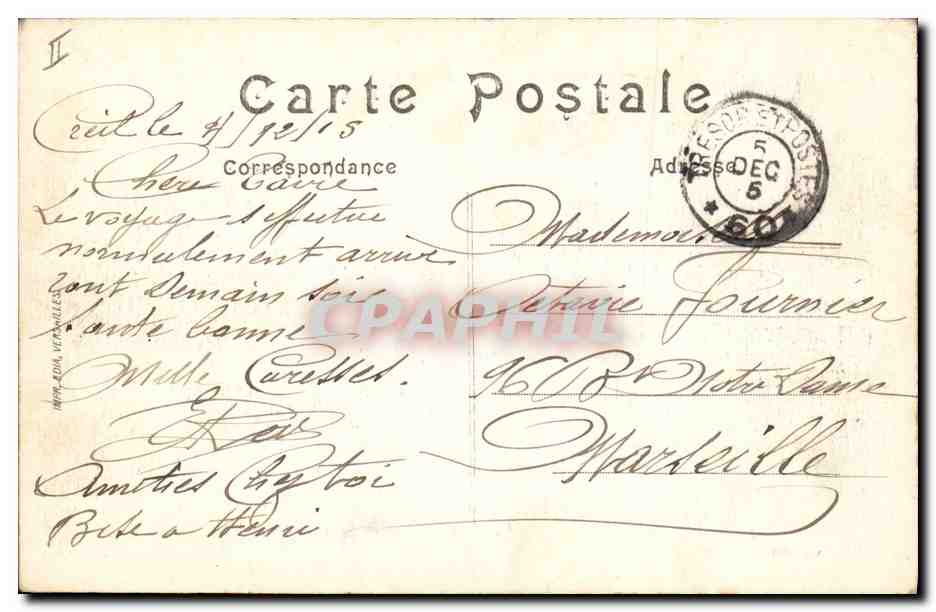 II
Carte Postale
Creil le 4/12/15
Correspondance
Adresse
TRESOR ET POSTES
5
DEC
5
* 607
Chère Tavie
Le voyage s'effectue
normalement arrive
ront demain soir
Sante bonne
Mille Caresses.
Amitiés Chez toi
Bise a Henri
Mademoiselle
Octavie Fournier
96 Bd Notre Dame
Marseille
IMP. EDIA, VERSAILLES
CPAPHIL